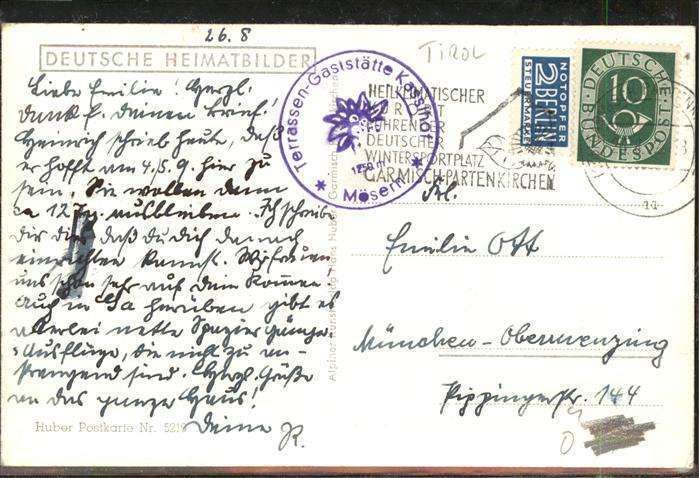 26.8
DEUTSCHE HEIMATBILDER
Liebe Emilie! Herzl.
Dank f. deinen Brief!
Heinrich schrieb heute, daß
er hofft am 4./5. 9. hier zu
sein. Sie wollen dann
ca 12 Tg. ausbleiben. Ich schreibe
Dir dies daß du dich danach
einrichten kannst. Wir freuen
uns schon sehr auf dein Kommen.
Auch in Ga herüben gibt es
allerlei nette Spaziergänge
Ausflüge, die nicht zu an-
strengend sind. Herzl. Grüße
an das ganze Haus!
Deine R.
Huber Postkarte Nr. 5219
Tirol
Terrassen-Gaststätte
1250 m
* Mösern *
HEILKLIMATISCHER
KURORT
FÜHRENDER
DEUTSCHER
WINTERSPORTPLATZ
GARMISCH-PARTENKIRCHEN
NOTOPFER
2 BERLIN
STEUERMARKE
DEUTSCHE
BUNDESPOST
10
Frl.
Emilie Ott
München-Obermenzing
Pippingerstr. 144